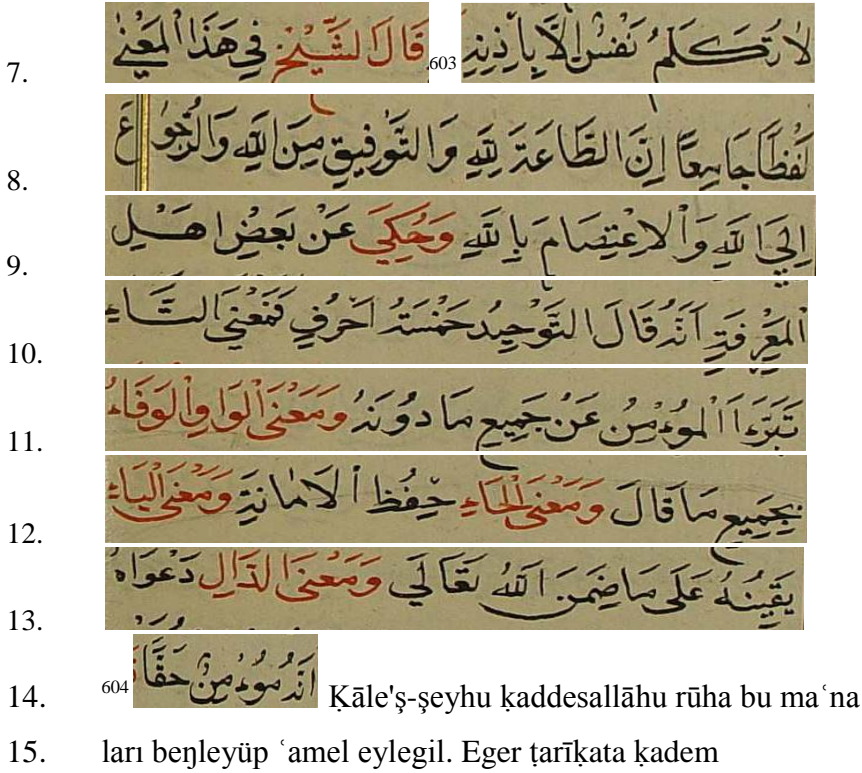 7. لَا تَكَلَّمُ نَفْسٌ اِلَّا بِاِذْنِهِ 603 قَالَ الشَّيْخُ فِي هَذَا الْمَعْنٰي
8. لَفْظًا جَامِعًا اِنَّ الطَّاعَةَ لِلّٰهِ وَالتَّوْفِيقِ مِنَ اللّٰهِ وَالرُّجُوعَ
9. اِلَي اللّٰهِ وَالْاِعْتِصَامَ بِاللّٰهِ وَحُكِيَ عَنْ بَعْضِ اهَـْلِ
10. الْمَعْرِفَةِ اَنَّهُ قَالَ التَّوْحِيدُ خَمْسَةُ اَحْرُفٍ فَمَعْنَي التَّاءِ
11. تَبَرَّءَ الْمُوءْمِنُ عَنْ جَمِيعِ مَا دُونَهُ وَمَعْنَي الْوَاوِ الْوَفَاءُ
12. بِجَمِيعِ مَا قَالَ وَمَعْنَي الْحَاءِ حِفْظُ الْاَمَانَةِ وَمَعْنَي الْيَاءِ
13. يَقِينُهُ عَلَى مَا ضَمِنَ اللّٰهُ تَعَالَي وَمَعْنَي الدَّالِ دَعْوَاهُ
14. 604 اَنَّهُ مُوءْمِنٌ حَقًّا Ḳāle'ş-şeyhu ḳaddesallāhu rūha bu maʿna
15. ları beŋleyüp ʿamel eylegil. Eger ṭarīḳata ḳadem